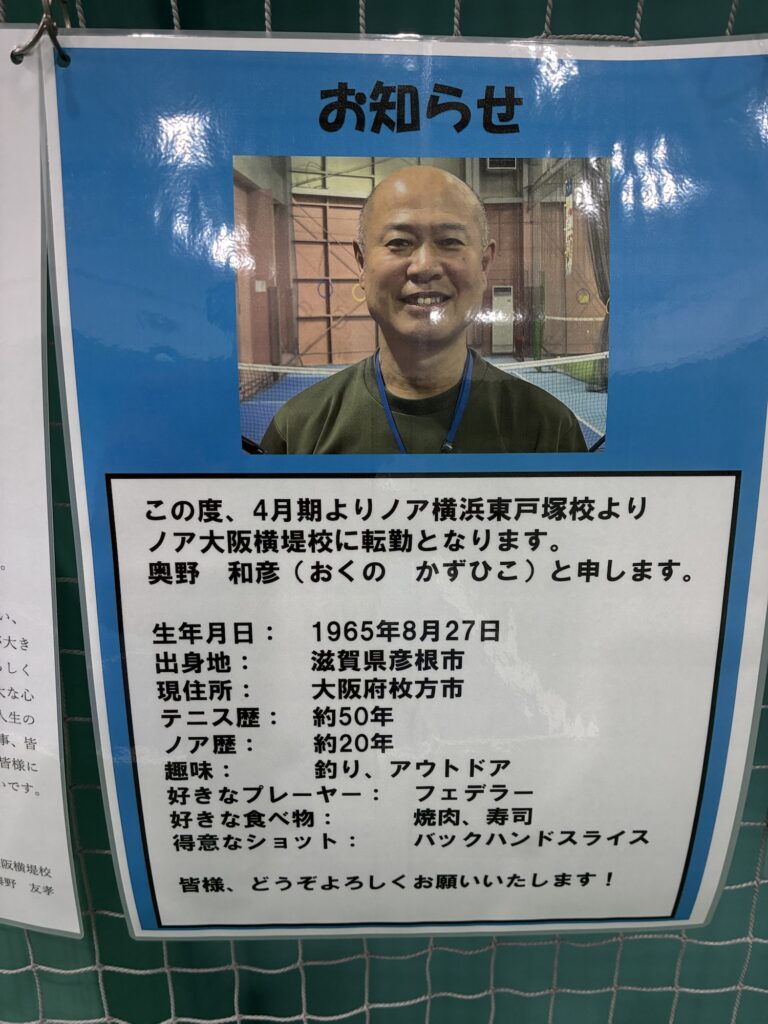 お知らせ
この度、4月期よりノア横浜東戸塚校より
ノア大阪横堤校に転勤となります。
奥野　和彦（おくの　かずひこ）と申します。
生年月日：　1965年8月27日
出身地：　滋賀県彦根市
現住所：　大阪府枚方市
テニス歴：　約50年
ノア歴：　約20年
趣味：　釣り、アウトドア
好きなプレーヤー：　フェデラー
好きな食べ物：　焼肉、寿司
得意なショット：　バックハンドスライス
皆様、どうぞよろしくお願いいたします！
。
い、
大き
しく
大な心
人生の
事、皆
皆様に
いです。
阪横堤校
野　友孝